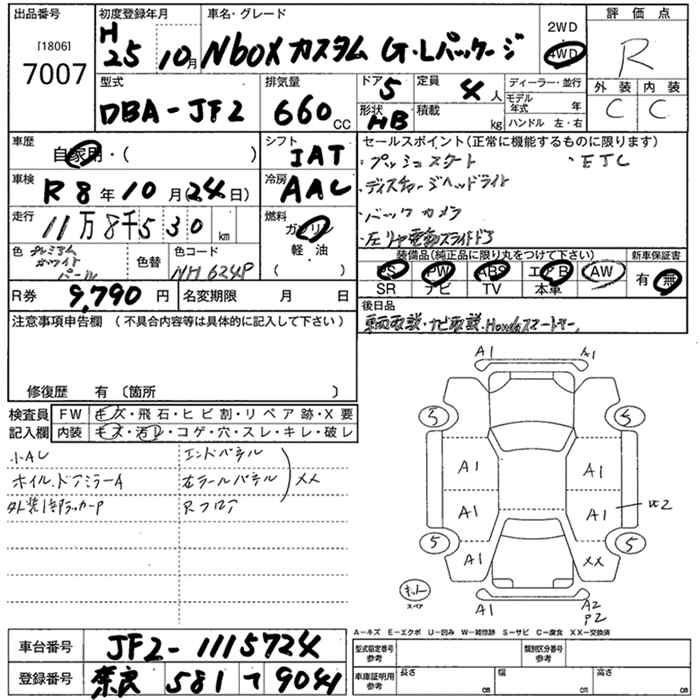 出品番号 初度登録年月 車名・グレード 2WD 評価点
[1806] H 25 10月 Nbox カスタム G・Lパッケージ 4WD R
7007 外装 内装
型式 排気量 ドア 5 定員 4人 ディーラー・並行 C C
DBA-JF2 660CC 形状 HB 積載 kg モデル年式 年
ハンドル 左・右
車歴 自家用・( ) シフト IAT セールスポイント(正常に機能するものに限ります)
・プッシュスタート ・ETC
車検 R8年10月(24日) 冷房 AAC ・ディスチャージヘッドライト
走行 11万8千530km 燃料 ガソリン ・バックカメラ
軽油 ・左リヤ電動スライドドア
( )
色 プレミアムホワイトパール 色替 色コード NH624P 装備品(純正品に限り丸をつけて下さい) 新車保証書
PS PW ABS エアB AW 有・無
R券 9,790円 名変期限 月 日 SR ナビ TV 本革
後日品
注意事項申告欄 (不具合内容等は具体的に記入して下さい) 車両取説・ナビ取説・Hondaスマートキー
修復歴 有 〔箇所 〕
検査員 FW キズ・飛石・ヒビ割・リペア跡・X要
記入欄 内装 キズ・汚レ・コゲ・穴・スレ・キレ・破レ
小AU エンドパネル
ホイル、ドアミラーA 右ラールパネル XX
外装1キラッカーP Rフロア
A1 A1
5 5
A1 A1
A1 A1 XX2
5 5
A1 XX
スペア A1 A2
P2
A-キズ E-エクボ U-凹み W-補修跡 S-サビ C-腐食 XX-交換済
車台番号 JF2-1115724 型式指定番号 参考 類別区分番号 参考
登録番号 奈良 581 つ 9044 車庫証明用 参考 長さ cm 幅 cm 高さ cm